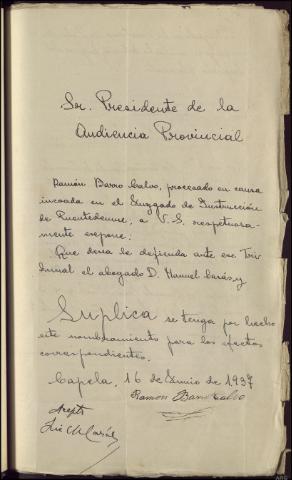 Sr. Presidente de la
Audiencia Provincial
Ramón Barro Calvo, procesado en causa
incoada en el Juzgado de Instrucción
de Puentedeume, a V.S. respetuosa-
mente expone:
Que desea le defienda ante ese Tri-
bunal el abogado D. Manuel y
Suplica se tenga por hecho
este nombramiento para los efectos
correspondientes.
Capela, 16 de Junio de 1937
Ramón Barro Calvo
Acepto